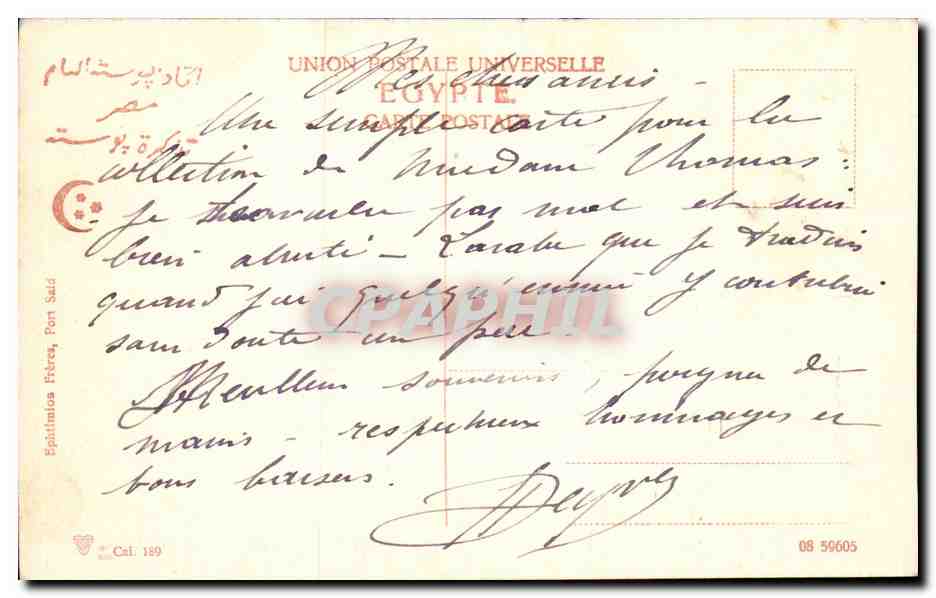 UNION POSTALE UNIVERSELLE
EGYPTE.
CARTE POSTALE
اتحاد پوسته العام
مصر
تذكرة پوسته
Mes chers amis -
Une simple carte pour la
collection de Madame Thomas :
Je travaille pas mal et suis
bien abruti - L'arabe que je traduis
quand j'ai quelqu'ennui y contribue
sans doute un peu.
Meilleurs souvenirs, poignée de
mains - respectueux hommages et
bons baisers.
CPAPHIL
Ephtimios Frères, Port Said
Cal. 189
08 59605